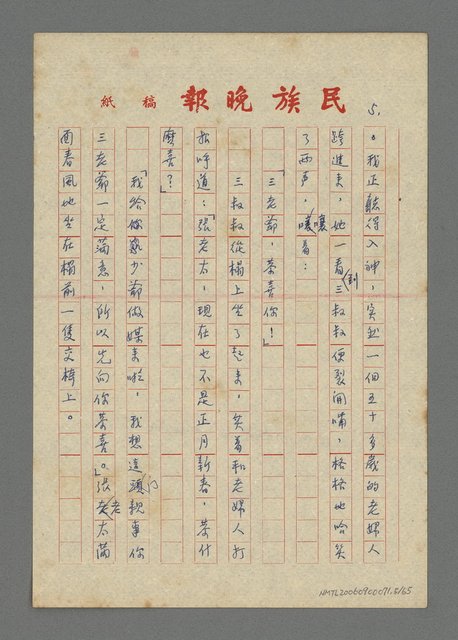 民族晚報 稿紙
5.
。我正聽得入神，突然一個五十多歲的老婦人
跨進來，她一看到三叔叔便裂開嘴，格格地哈笑
了兩声，嚷嚷着：
「三老爺，恭喜你！」
三叔叔從榻上坐了起来，笑着和老婦人打
招呼道：「張老太，現在也不是正月新春，恭什
麼喜？」
「我給你家少爺做媒来啦，我想這門親事你
三老爺一定滿意，所以先向你恭喜。」張老太滿
面春風地坐在榻前一隻交椅上。
NMTL20060900071.5/65